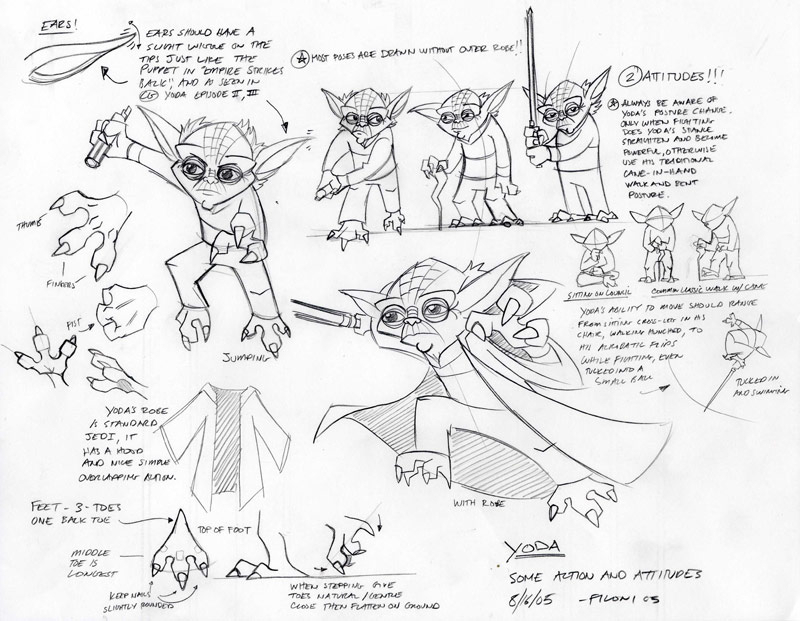 EARS!
EARS SHOULD HAVE A
SLIGHT WIGGLE ON THE
TIPS JUST LIKE THE
PUPPET IN "EMPIRE STRIKES
BACK", AND AS SEEN IN
CG YODA EPISODE II, III
MOST POSES ARE DRAWN WITHOUT OUTER ROBE!!
2 ATTITUDES!!!
ALWAYS BE AWARE OF
YODA'S POSTURE CHANGE.
ONLY WHEN FIGHTING
DOES YODA'S STANCE
STRAIGHTEN AND BECOME
POWERFUL, OTHERWISE
USE HIS TRADITIONAL
CANE-IN-HAND
WALK AND BENT
POSTURE.
THUMB
FINGERS
FIST
JUMPING
SITTING ON COUNCIL
COMMON CLASSIC WALK W/ CANE
YODA'S ABILITY TO MOVE SHOULD RANGE
FROM SITTING CROSS-LEG IN HIS
CHAIR, WALKING HUNCHED, TO
HIS ACROBATIC FLIPS
WHILE FIGHTING, EVEN
TUCKED INTO A
SMALL BALL
TUCKED IN
AND SWINGING
YODA'S ROBE
IS STANDARD
JEDI, IT
HAS A HOOD
AND NICE SIMPLE
OVERLAPPING ACTION.
WITH ROBE
FEET - 3 - TOES
ONE BACK TOE
TOP OF FOOT
MIDDLE
TOE IS
LONGEST
KEEP NAILS
SLIGHTLY ROUNDED
WHEN STEPPING GIVE
TOES NATURAL / GENTLE
CLOSE THEN FLATTEN ON GROUND
YODA
SOME ACTION AND ATTITUDES
8/16/05 - FILONI 05